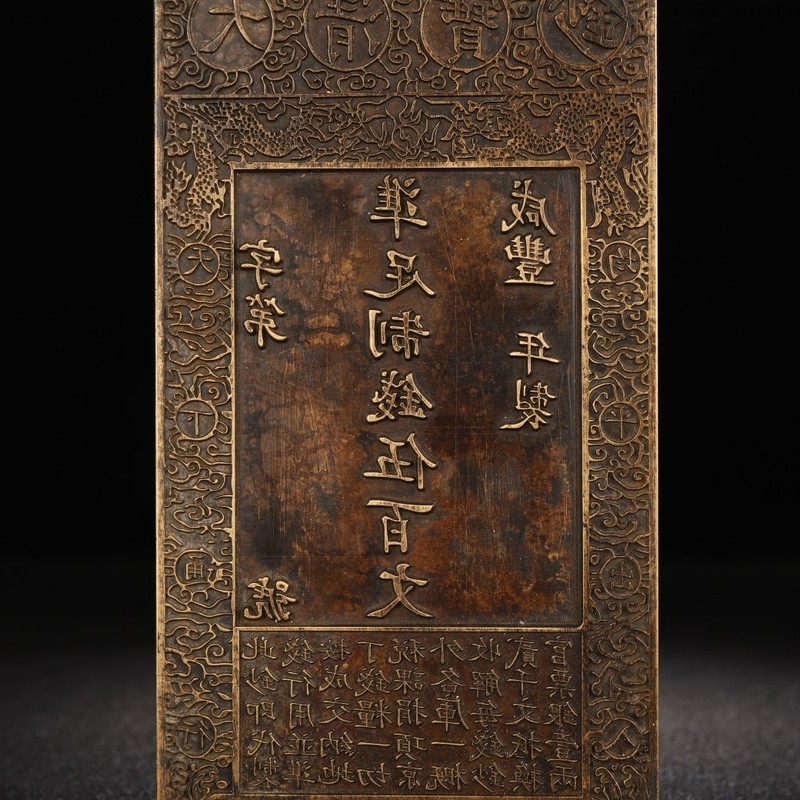 大清寶鈔
天下通行
均平出入
字第 號
準足制錢伍百文
咸豐 年製
此鈔即代製
錢行用並準
按成交納地
丁錢糧一切
稅課捐項京
外各庫一概
收解每錢鈔
貳千文抵換
官票銀壹兩